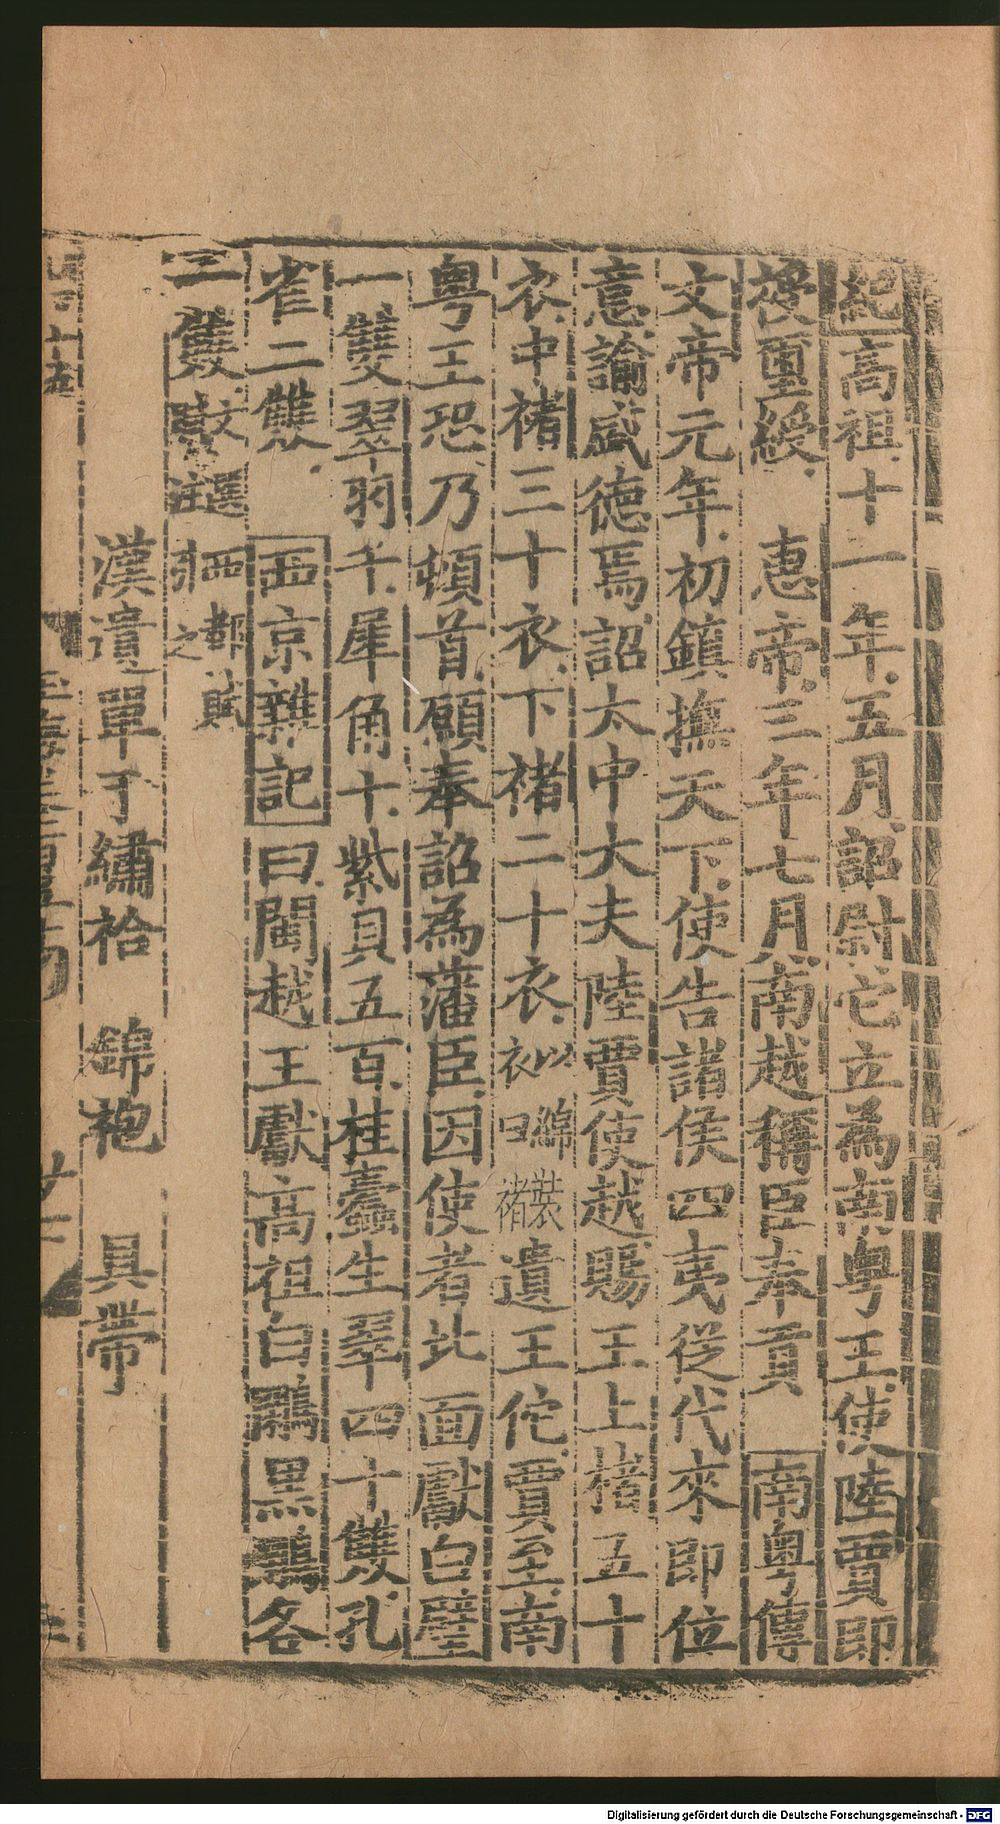 紀高祖十一年五月詔尉它立為南粤王使陸賈即
授璽綬　惠帝三年七月南越稱臣奉貢　南粤傳
文帝元年初鎮撫天下使告諸侯四夷從代來即位
意諭盛德焉詔太中大夫陸賈使越賜王上褚五十
衣中褚三十衣下褚二十衣以綿裝衣曰褚遺王佗賈至南
粤王恐乃頓首願奉詔為藩臣因使者北面獻白璧
一雙翠羽千犀角十紫貝五百桂蠹生翠四十雙孔
雀二雙　西京雜記曰閩越王獻高祖白鷳黑鷳各
二雙文選西都賦注引之
漢遺單于繡袷　錦袍　具帶
Digitalisierung gefördert durch die Deutsche Forschungsgemeinschaft - DFG